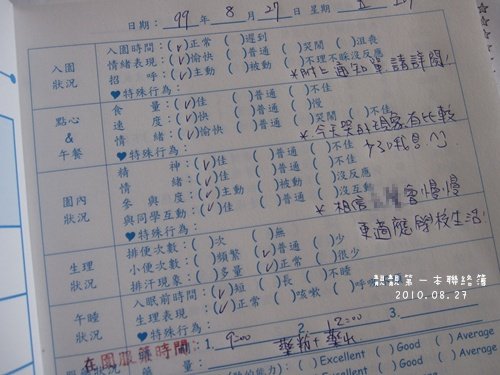 日期：99年8月27日 星期五
入園狀況
入園時間：(✓)正常 ( )遲到
情緒表現：(✓)愉快 ( )普通 ( )哭鬧 ( )沮喪
招 呼：(✓)主動 ( )被動 ( )不理不睬沒反應
♥特殊行為： *附上通知單請詳閱!
點心&午餐
食 量：(✓)佳 ( )普通 ( )不佳
速 度：(✓)快 ( )普通 ( )慢
情 緒：(✓)愉快 ( )普通 ( )哭鬧
♥特殊行為： *今天哭的現象有比較
少3哦!^^
園內狀況
精 神：(✓)佳 ( )普通 ( )不佳
情 緒：(✓)佳 ( )普通 ( )不佳
參 與 度：(✓)主動 ( )被動 ( )沒反應
與同學互動：(✓)佳 ( )普通 ( )沒互動
♥特殊行為： *相信 會慢慢
更適應學校生活!
生理狀況
排便次數：( )次 ( )無
小便次數：( )頻繁 (✓)普通 ( )少
排汗現象：( )多量 (✓)正常 ( )很少
午睡狀況
入眠前時間：(✓)短 ( )長 ( )不睡
生理表現：(✓)正常 ( )咳嗽 ( )呼
♥特殊行為：
在園服藥時間： 1. 9:00 2. 12:00 3.
藥粉+藥水
( )Excellent ( )Good ( )Average
( )Excellent ( )Good ( )Average
靚靚第一本聯絡簿
2010.08.27